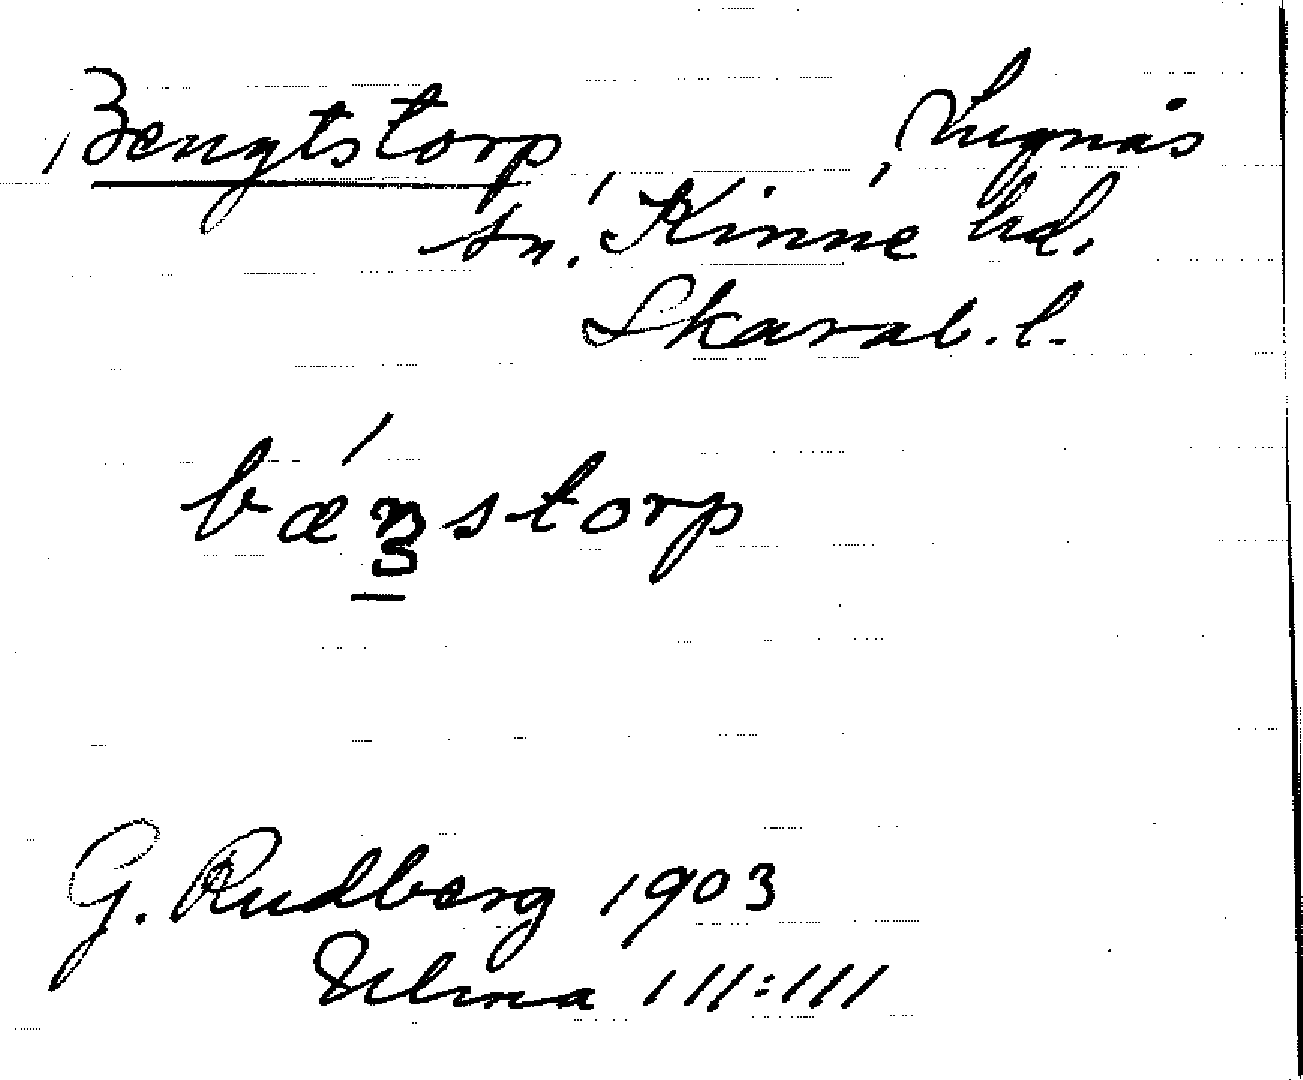 Bengtstorp, Lugnås
sn. Kinne hd.
Skarab. l.
bǽŋstorp
G. Rudberg 1903
Ulma 111:111